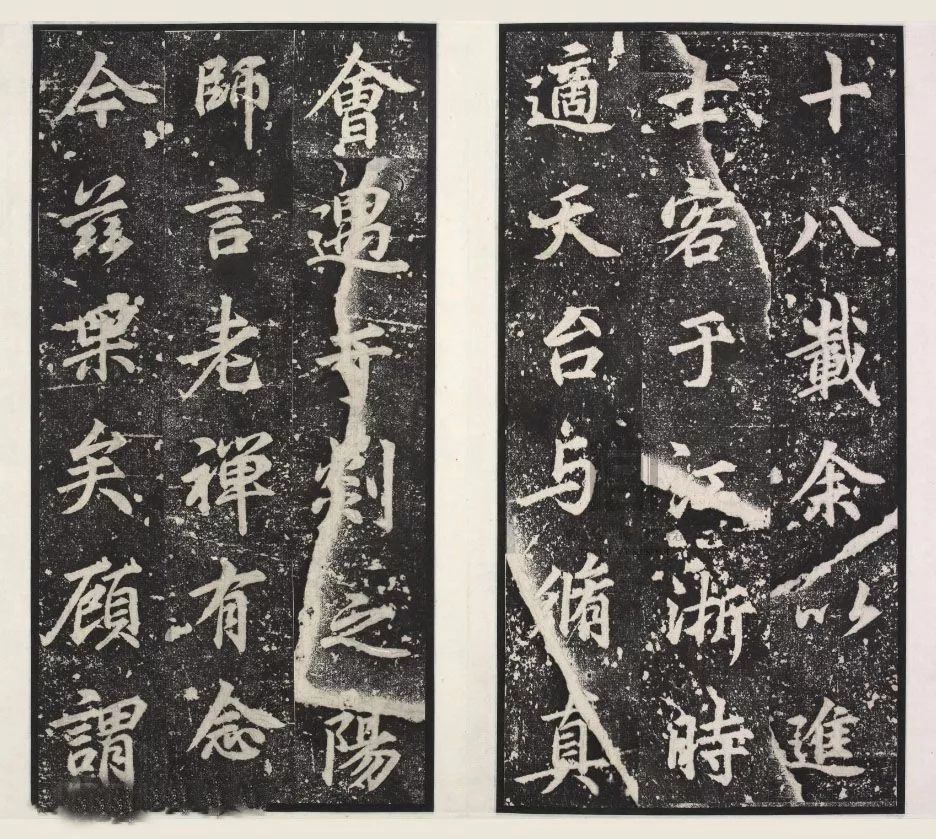 十八載余以進
士客于江浙時
適天台与脩真
會遇寺剡之陽
師言老禪有念
今茲果矣顧謂